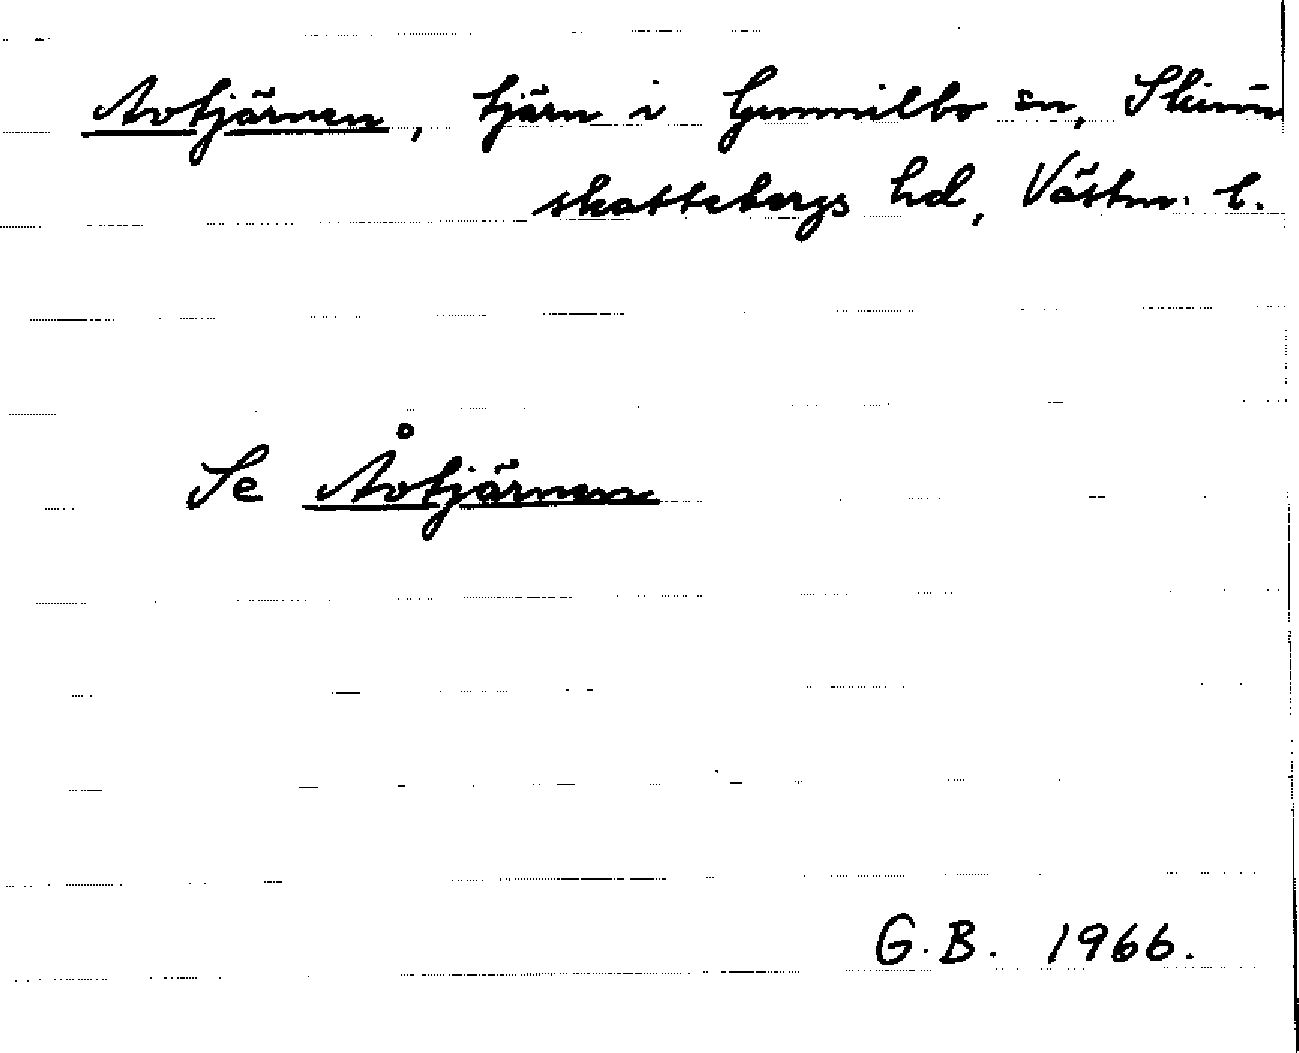 Aotjärnen, tjärn i Gunnilbo sn, Skinn
skattebergs hd, Västm. l.
Se Åotjärnen
G.B. 1966.